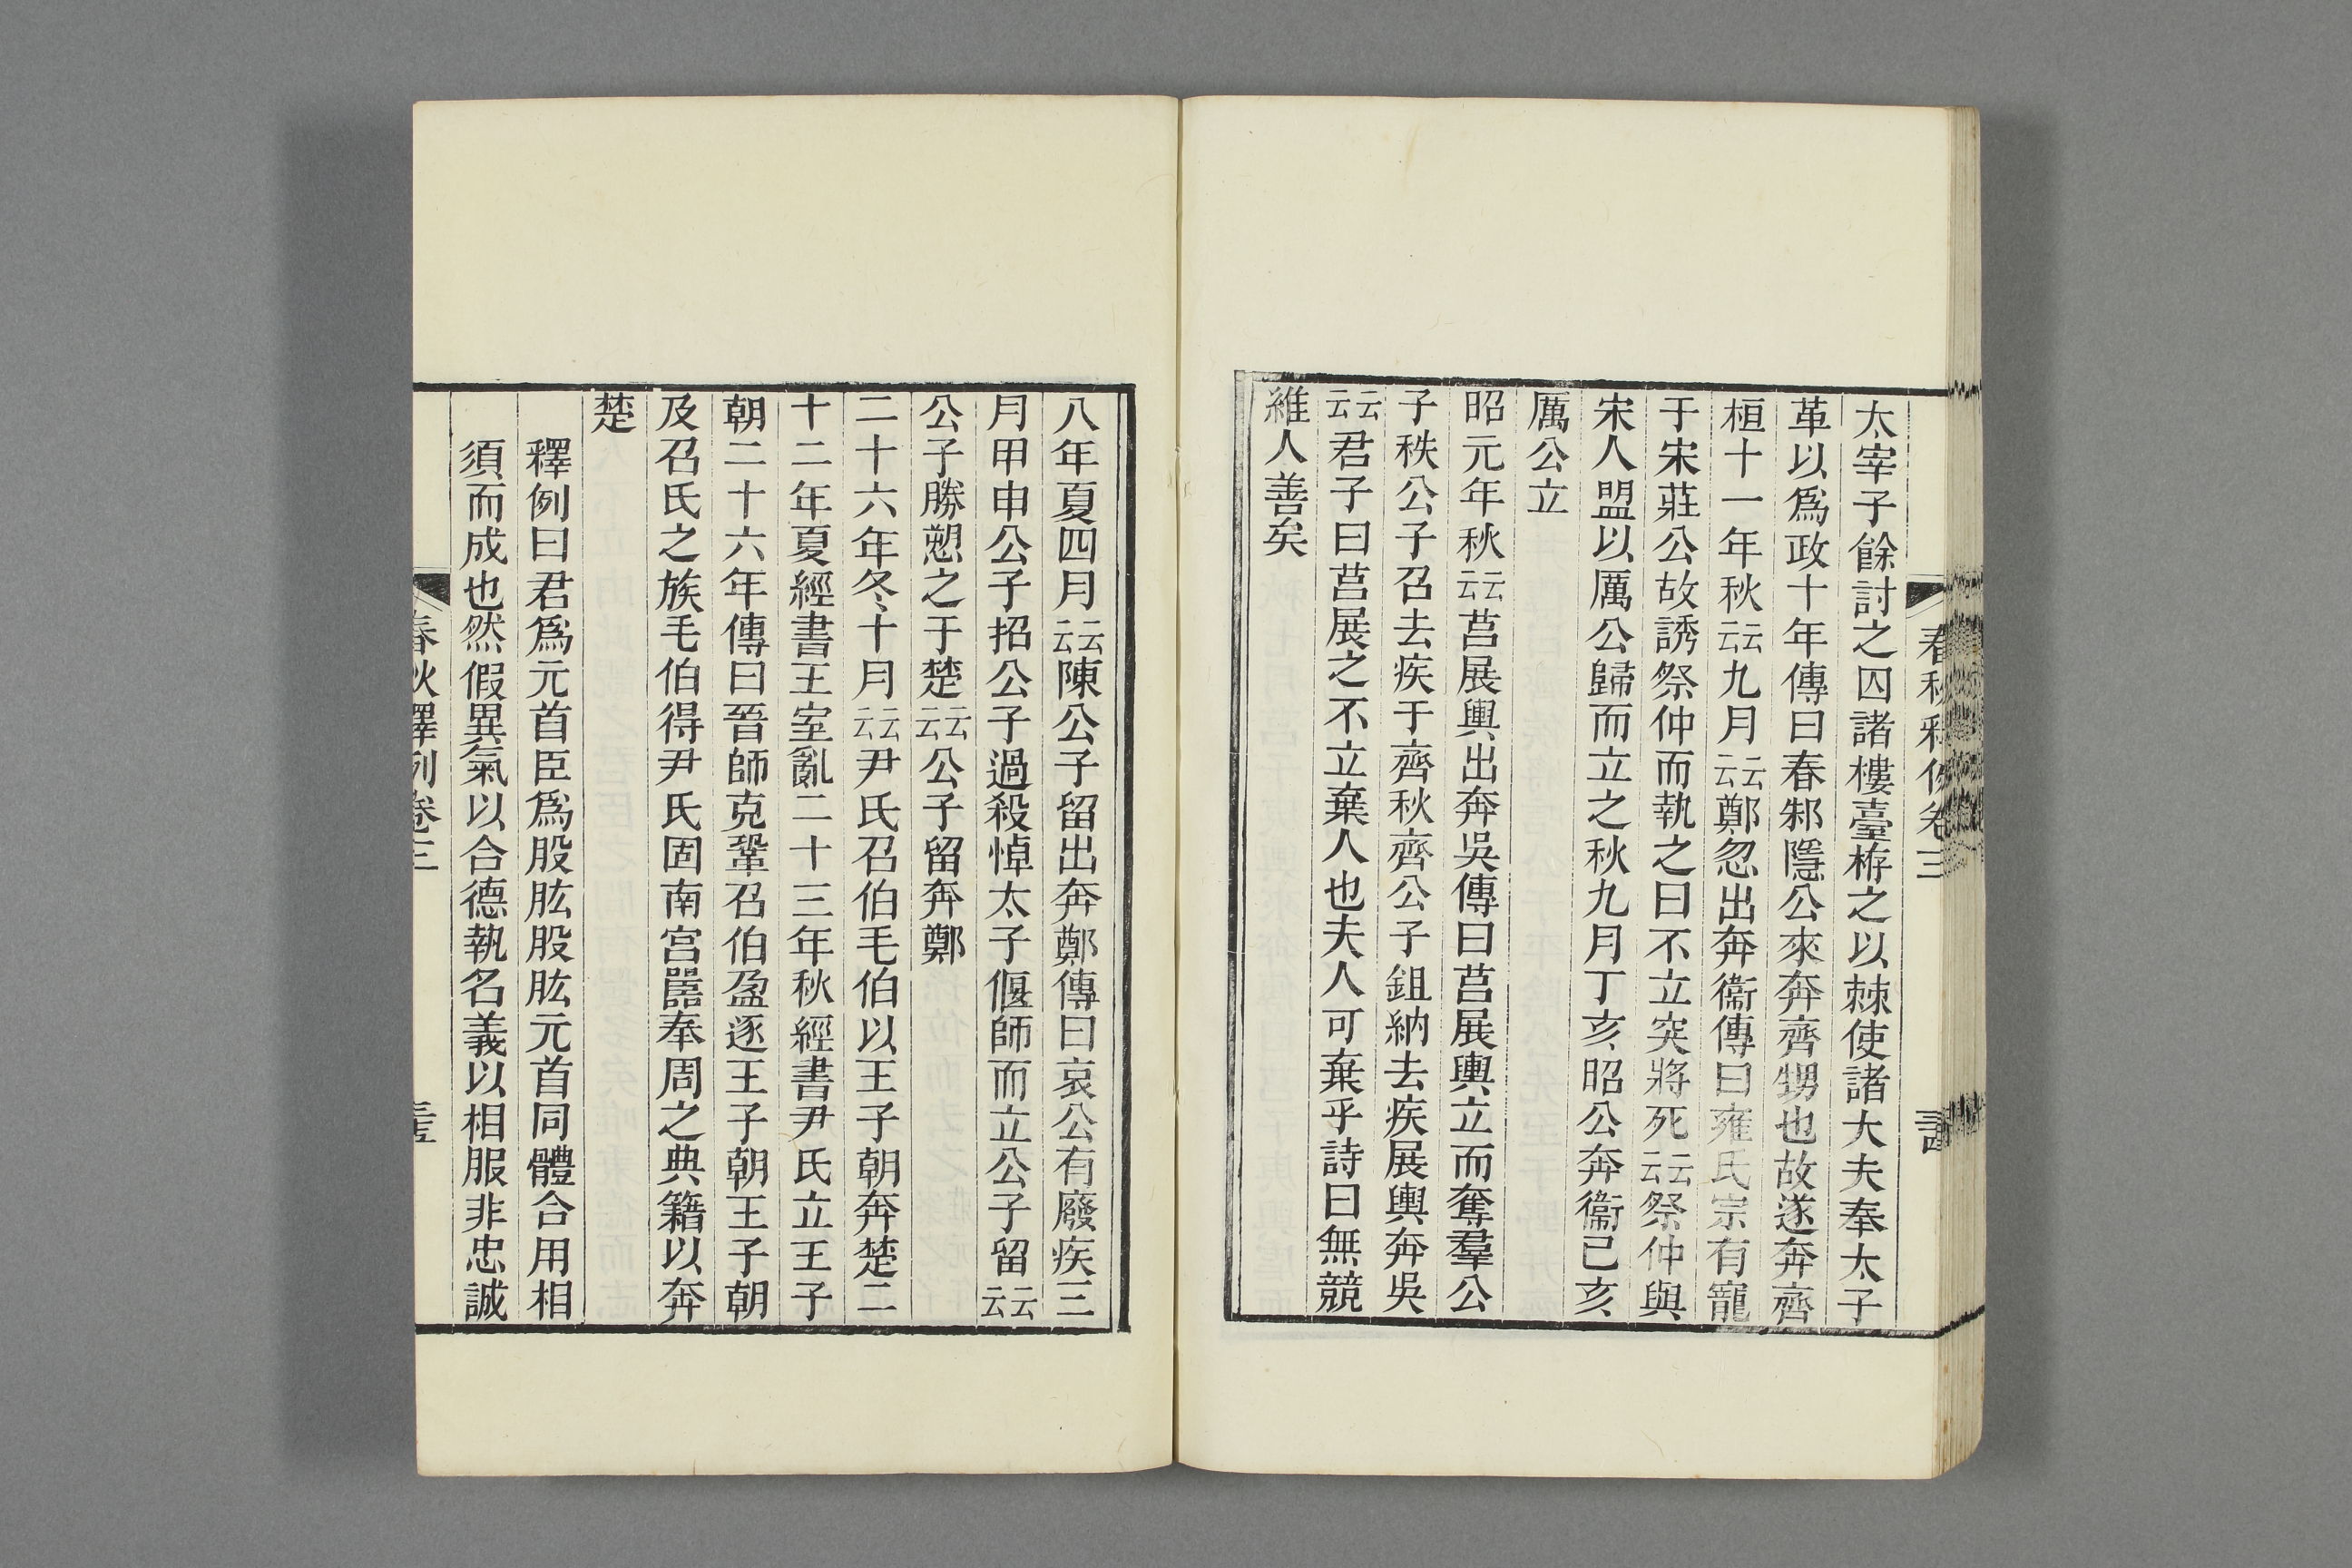 春秋釋例卷三
太宰子餘討之囚諸樓臺栫之以棘使諸大夫奉太子
革以爲政十年傳曰春邾隱公來奔齊甥也故遂奔齊
桓十一年秋云云九月云云鄭忽出奔衞傳曰雍氏宗有寵
于宋莊公故誘祭仲而執之曰不立突將死云云祭仲與
宋人盟以厲公歸而立之秋九月丁亥昭公奔衞己亥
厲公立
昭元年秋云云莒展輿出奔吳傳曰莒展輿立而奪羣公
子秩公子召去疾于齊秋齊公子鉏納去疾展輿奔吳
云云君子曰莒展之不立棄人也夫人可棄乎詩曰無競
維人善矣
八年夏四月云云陳公子留出奔鄭傳曰哀公有廢疾三
月甲申公子招公子過殺悼太子偃師而立公子留云云
公子勝愬之于楚云云公子留奔鄭
二十六年冬十月云云尹氏召伯毛伯以王子朝奔楚二
十二年夏經書王室亂二十三年秋經書尹氏立王子
朝二十六年傳曰晉師克鞏召伯盈逐王子朝王子朝
及召氏之族毛伯得尹氏固南宮嚚奉周之典籍以奔
楚
釋例曰君爲元首臣爲股肱股肱元首同體合用相
須而成也然假異氣以合德執名義以相服非忠誠
春秋釋例卷三